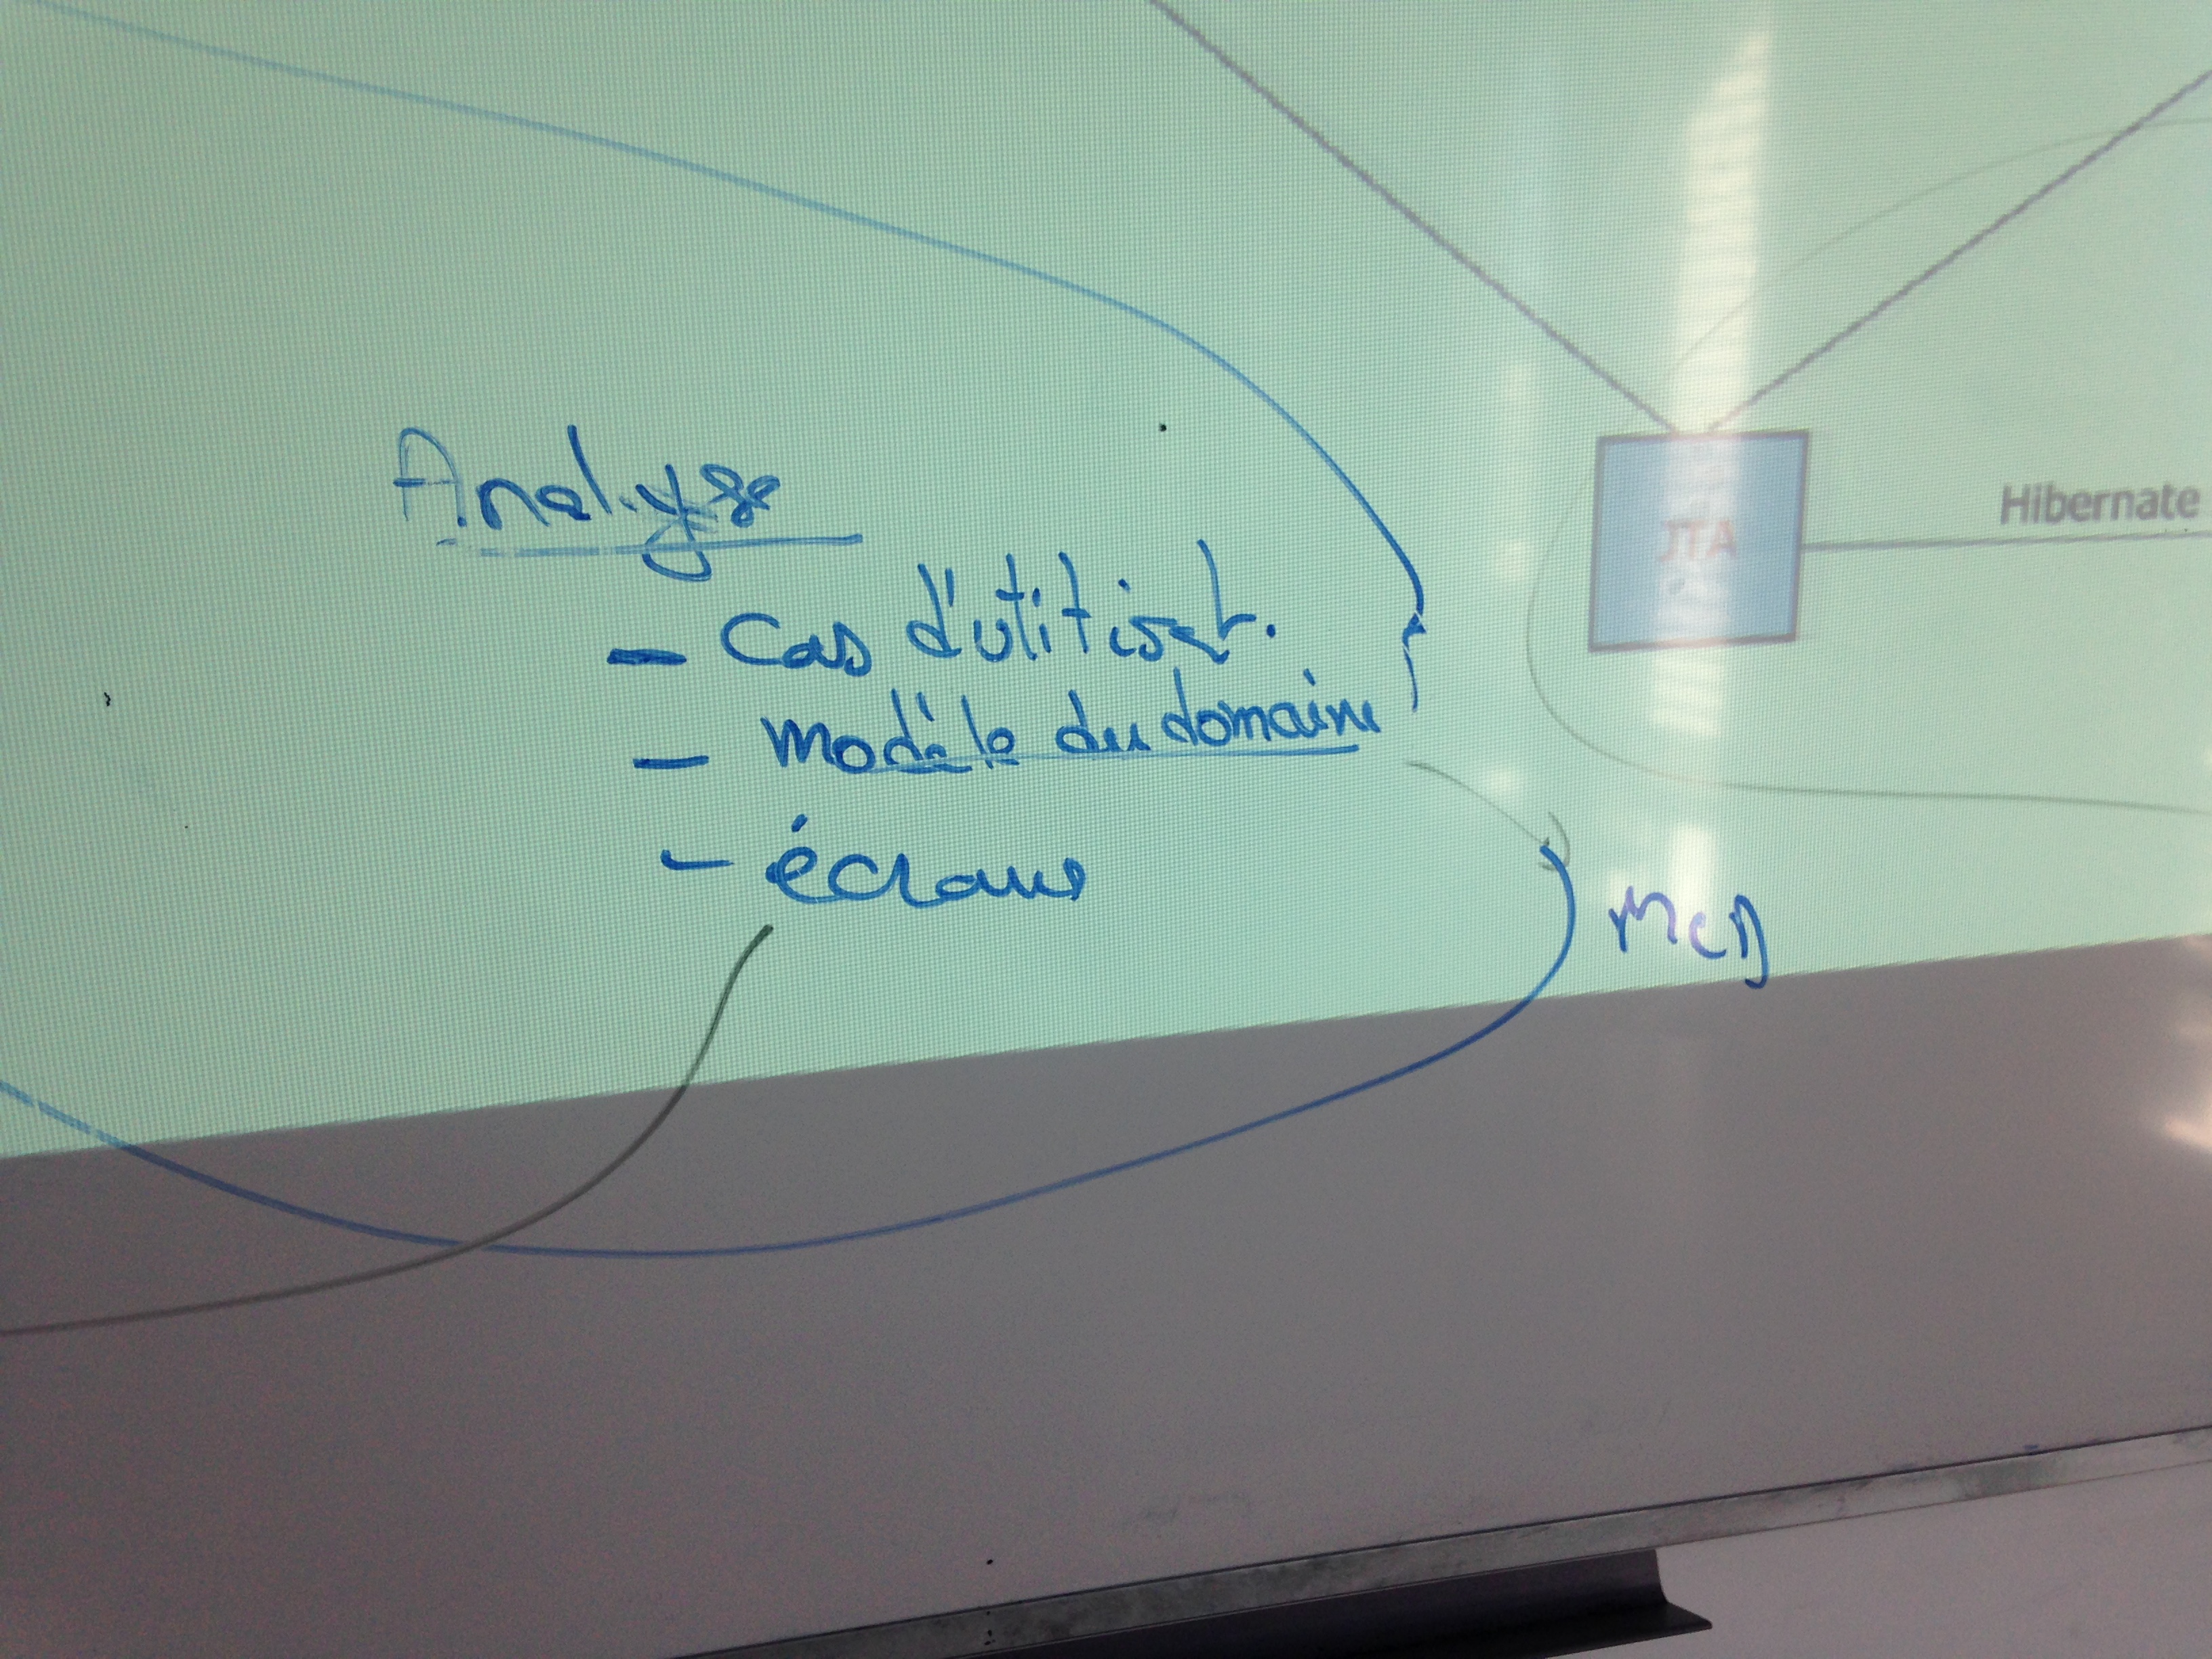 Analyse
- Cas d'utilisat.
- modèle du domaine
- écrans
MCD
JTA
Hibernate